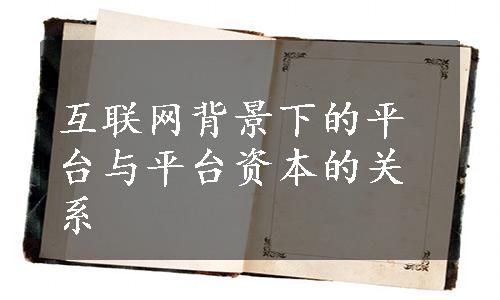 互联网背景下的平
台与平台资本的关
系